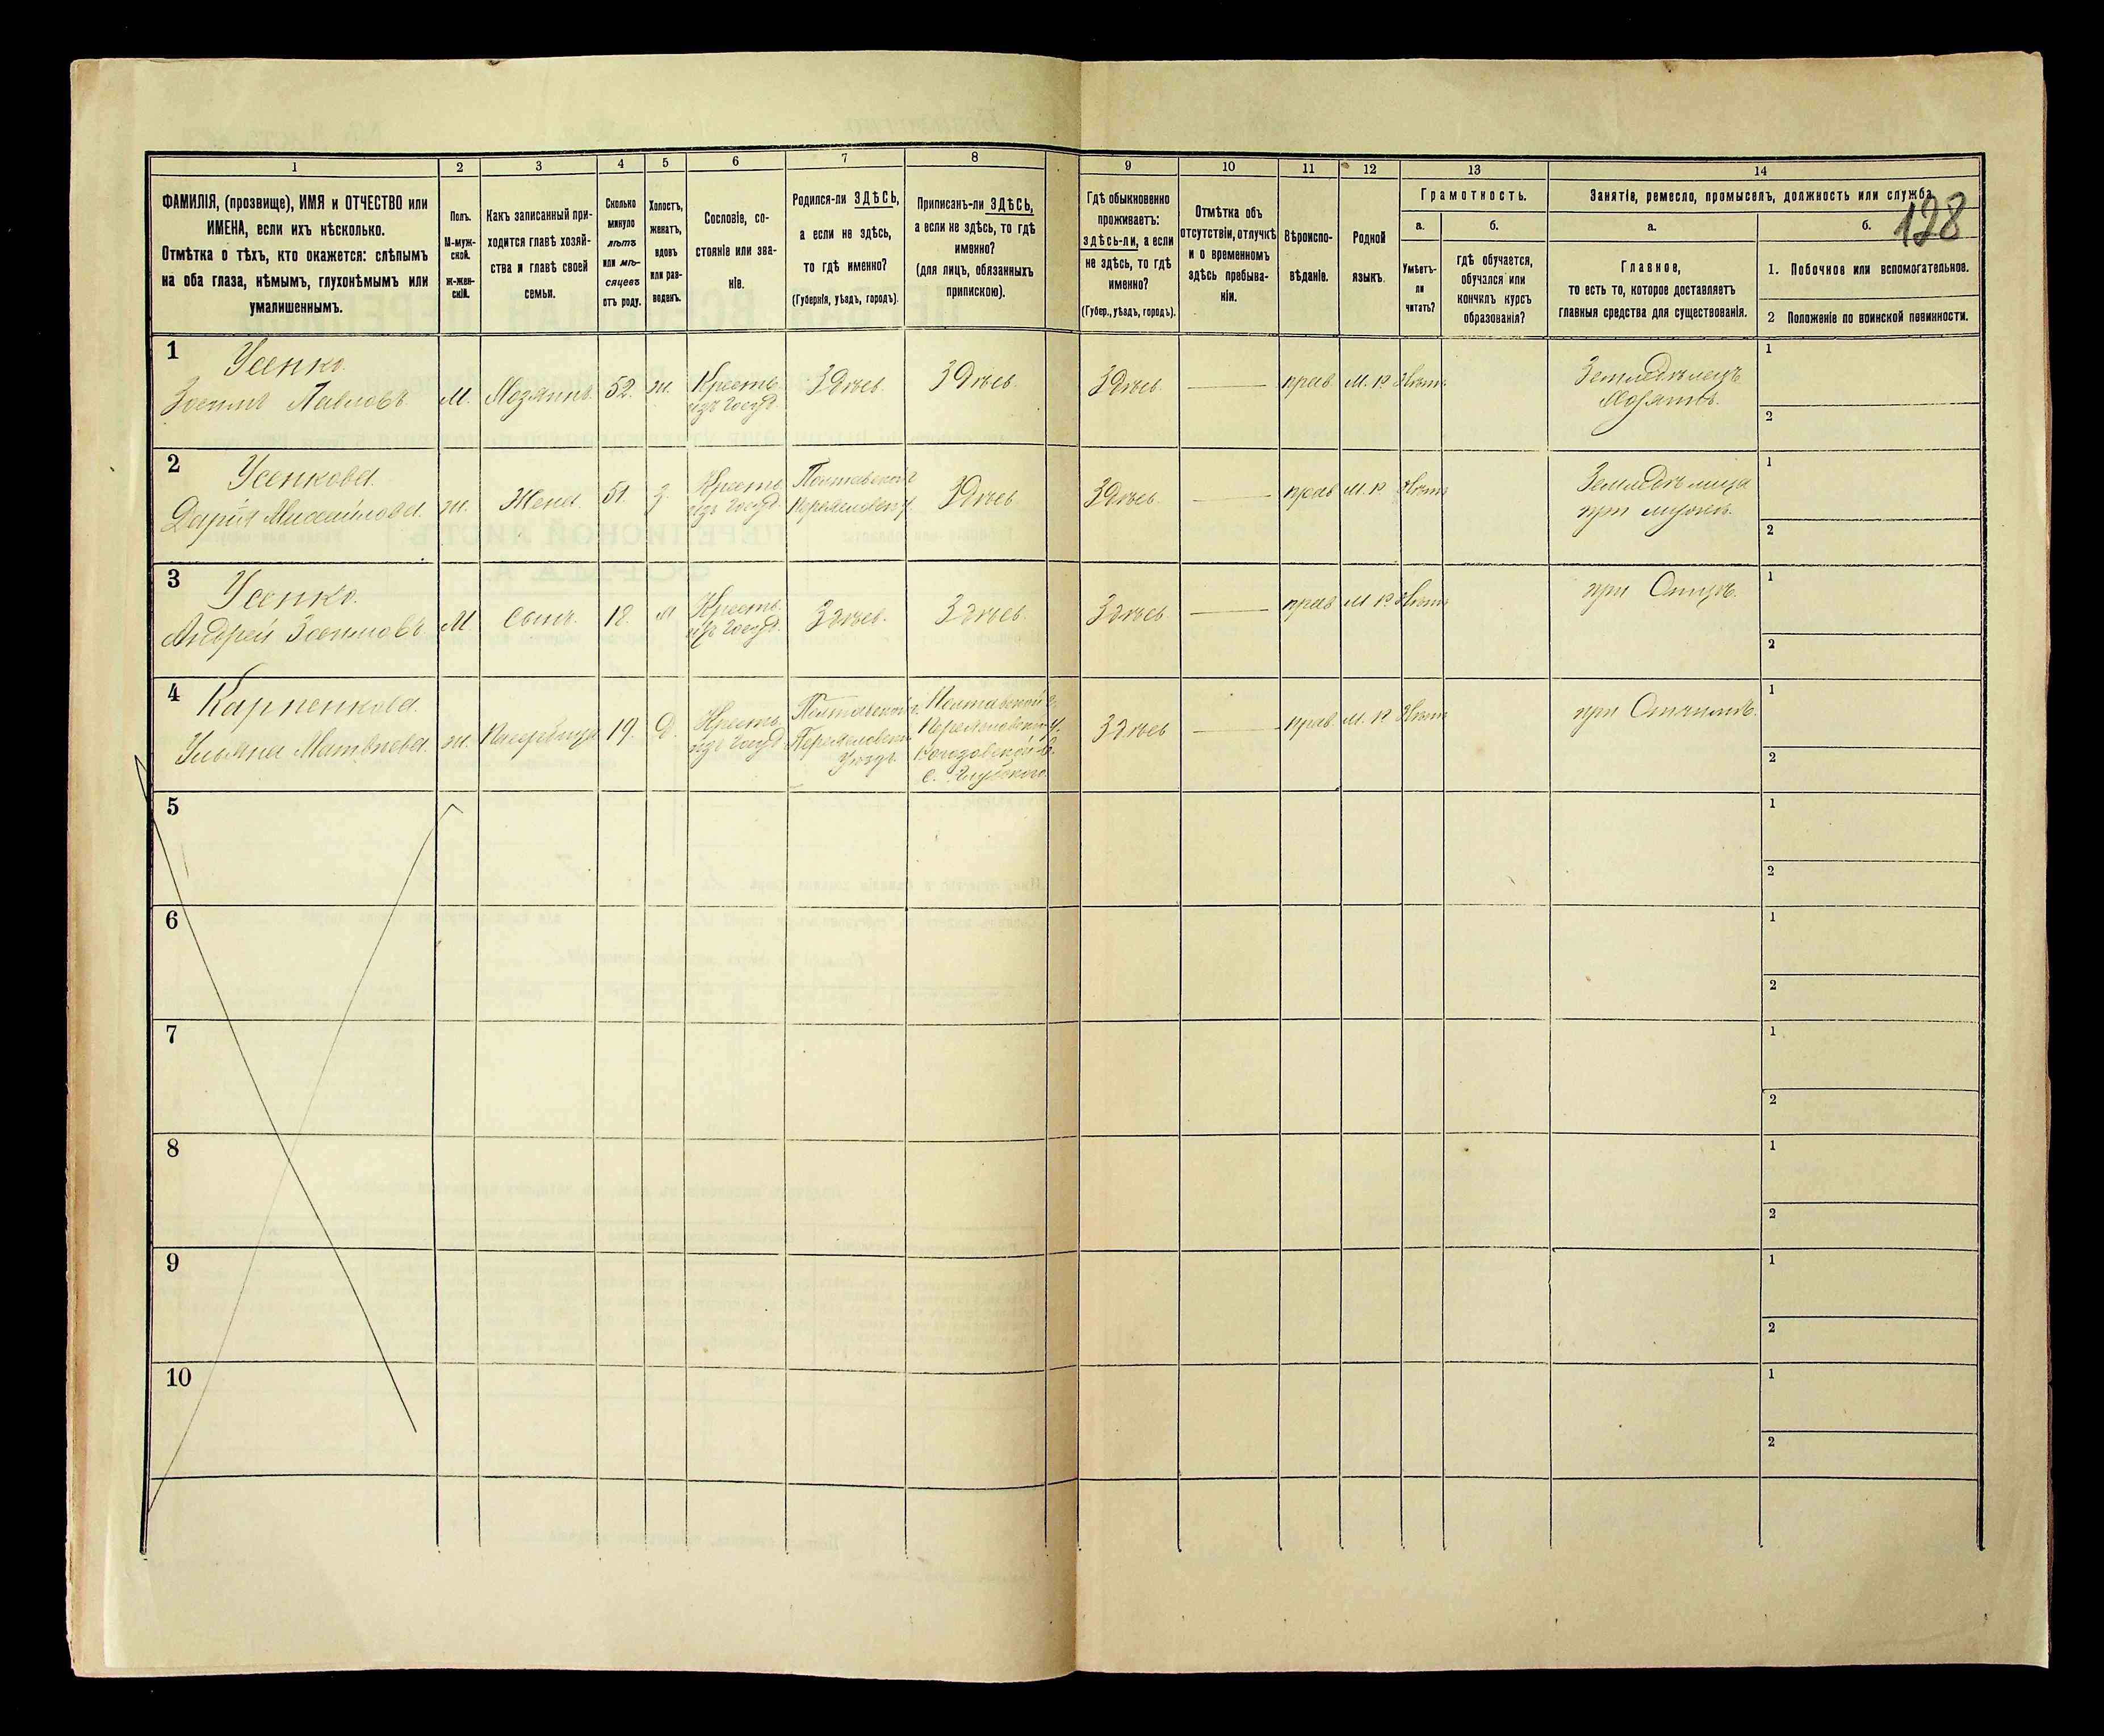 1
2
3
4
5
6
7
8
9
10
11
12
13
14
ФАМИЛІЯ, (прозвище), ИМЯ и ОТЧЕСТВО или
ИМЕНА, если ихъ нѣсколько.
Отмѣтка о тѣхъ, кто окажется: слѣпымъ
на оба глаза, нѣмымъ, глухонѣмымъ или
умалишеннымъ.
Полъ.
М-муж-
ской.
Ж-жен-
скій.
Какъ записанный при-
ходится главѣ хозяй-
ства и главѣ своей
семьи.
Сколько
минуло
лѣтъ
или мѣ-
сяцевъ
отъ роду.
Холостъ,
женатъ,
вдовъ
или раз-
веденъ.
Сословіе, со-
стояніе или зва-
ніе.
Родился-ли ЗДѢСЬ,
а если не здѣсь,
то гдѣ именно?
(Губернія, уѣздъ, городъ).
Приписанъ-ли ЗДѢСЬ,
а если не здѣсь, то гдѣ
именно?
(для лицъ, обязанныхъ
припискою).
Гдѣ обыкновенно
проживаетъ:
здѣсь-ли, а если
не здѣсь, то гдѣ
именно?
(Губер., уѣздъ, городъ).
Отмѣтка объ
отсутствіи, отлучкѣ
и о временномъ
здѣсь пребыва-
ніи.
Вѣроиспо-
вѣданіе.
Родной
языкъ.
Грамотность.
а.
Умѣетъ-
ли
читать?
б.
гдѣ обучается,
обучался или
кончилъ курсъ
образованія?
Занятіе, ремесло, промыселъ, должность или служба.
128
а.
Главное,
то есть то, которое доставляетъ
главныя средства для существованія.
б.
1. Побочное или вспомогательное.
2 Положеніе по воинской повинности.
1
Усенко.
Зосимъ Павловъ
М.
Хозяинъ.
52.
ж.
Кресть.
изъ Госуд.
Здѣсь.
Здѣсь
Здѣсь.
прав.
М. Р.
Нѣтъ
Земледѣлецъ
Хозяинъ.
1
2
2
Усенкова.
Дарія Михайлова.
ж.
Жена.
51.
з.
Кресть.
изъ Госуд.
Полтавской г
Переяславск у.
Здѣсь
Здѣсь.
прав
М. Р.
Нѣтъ
Земледѣлица
при мужѣ.
1
2
3
Усенко.
Андрей Зосимовъ
М.
Сынъ.
12.
Кресть.
изъ Госуд.
Здѣсь.
Здѣсь.
Здѣсь
прав
М Р.
Нѣтъ
при Отцѣ.
1
2
4
Карпенкова.
Ульяна Матвѣева.
ж.
19.
д.
Кресть.
изъ Госуд.
Полтавской г.
Переяславск.
Уѣзда.
Полтавской г.
Переяславск. у.
с. Глубокого
Здѣсь
прав.
М. Р.
Нѣтъ
при Отчимѣ.
1
2
5
1
2
6
1
2
7
1
2
8
1
2
9
1
2
10
1
2